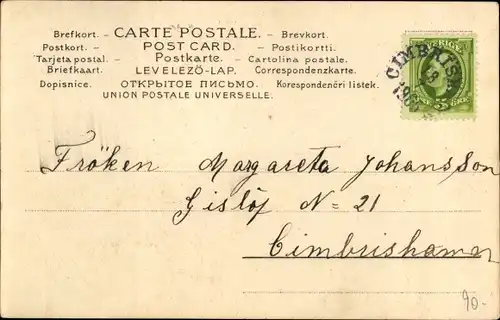 Brefkort. – CARTE POSTALE. – Brevkort.
Postkort. – POST CARD. – Postikortti.
Tarjeta postal. – Postkarte. – Cartolina postale.
Briefkaart. LEVELEZŐ-LAP. Correspondenzkarte.
Dopisnice. ОТКРЫТОЕ ПИСЬМО. Korespondenčri listek.
UNION POSTALE UNIVERSELLE.
SVERIGE
5 ÖRE
Fröken Margareta Johansson
Gislöf N= 21
Cimbrishamn
90-